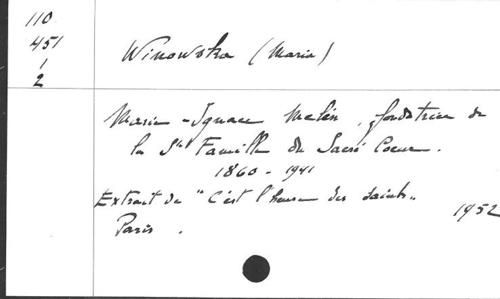 110
451
1
2
Winowska (Maria)
Marie-Ignace Melin, fondatrice de
la Ste Famille du Sacré Coeur.
1860 - 1941
Extrait de "C'est l'heure des saints"
1952
Paris.